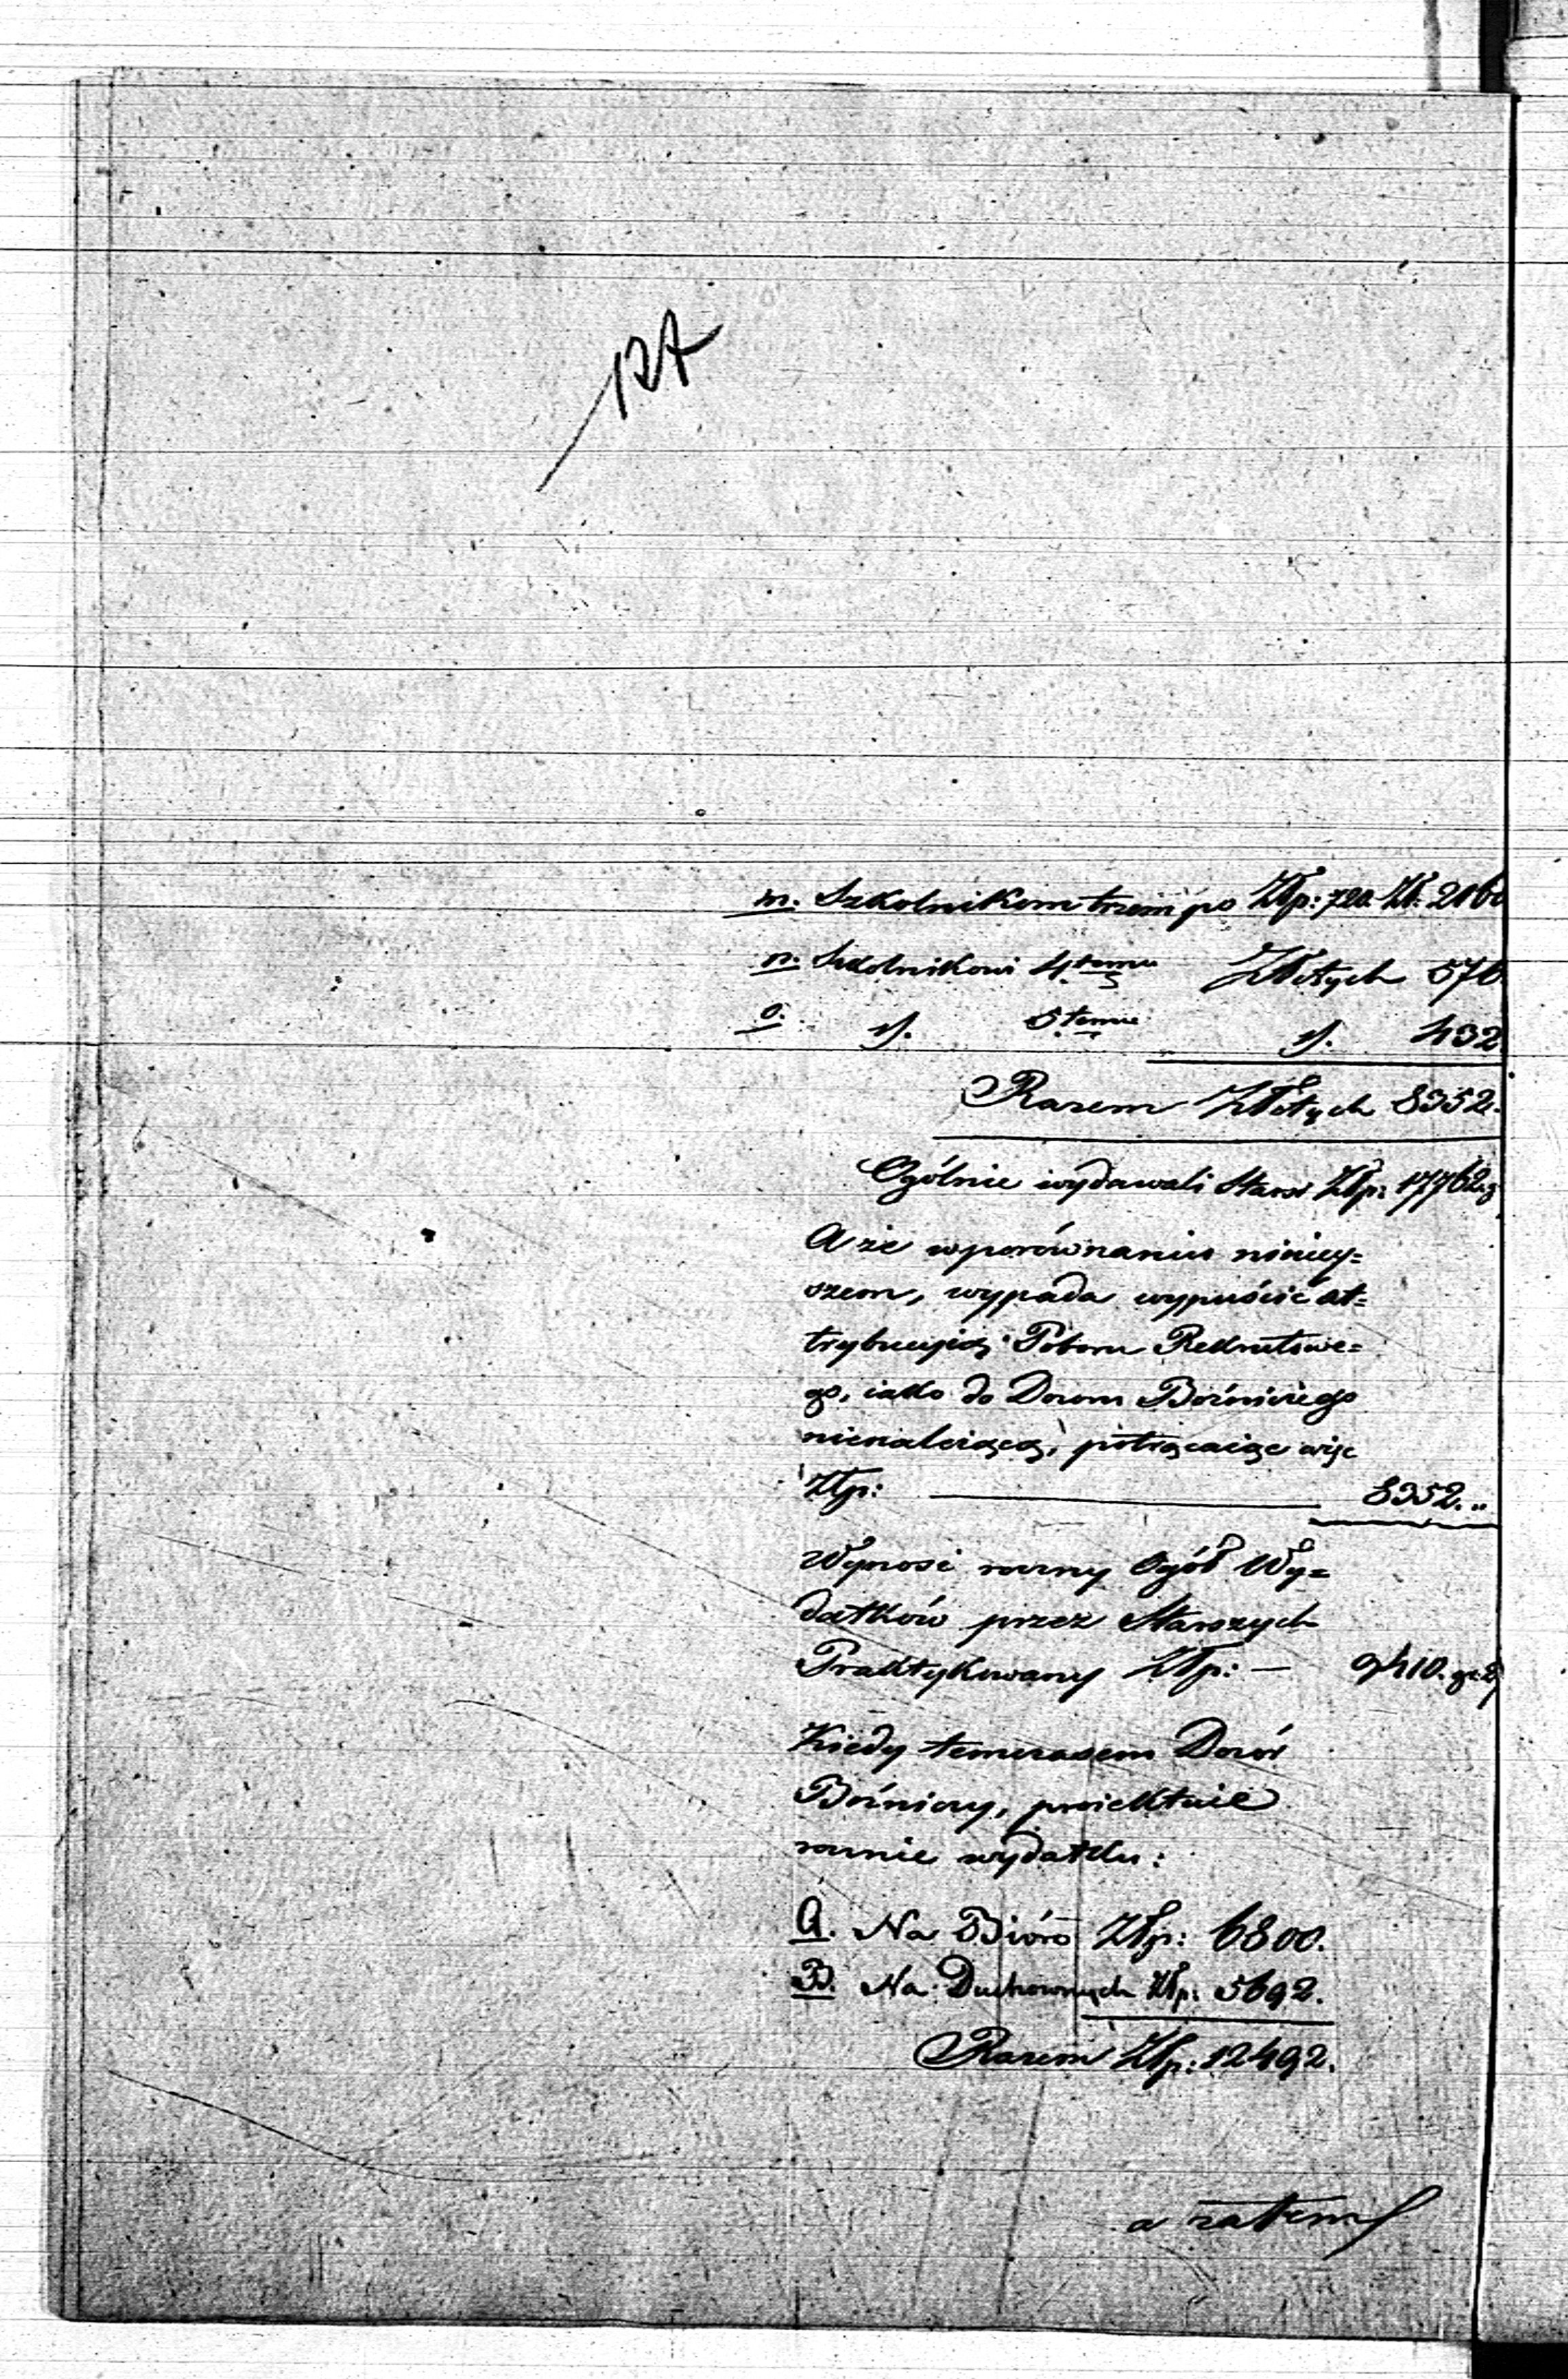 127
m. Szkolnikom trzem po Złp: 720. Zł. 2160
n. Szkolnikowi 4temu Złotych 576.
o. d. 5temu d. 432
Razem Złotych 8352.
Ogólnie wydawali Starsi Złp: 17762.
A że w porównaniu niniey=
szem, wypada wypuścić at=
trybucyią Poboru Rekrutowe=
go, iako do Dozoru Bożniczego
nienależącą, potrącaiąc więc
Złp: — 8352. „
Wynosi roczny Ogół Wy=
datków przez Starszych
Praktykowany Złp: — 9410. gr.
Kiedy temczasem Dozór
Bóżniczy, proiektuie
rocznie wydatku:
A. Na Bióro Złp: 6800.
B. Na Duchownych Złp: 5692.
Razem Złp: 12492.
a zatem